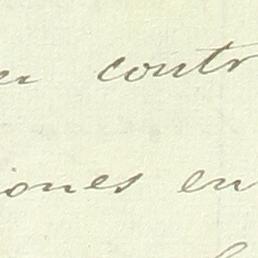 en contr
iones en